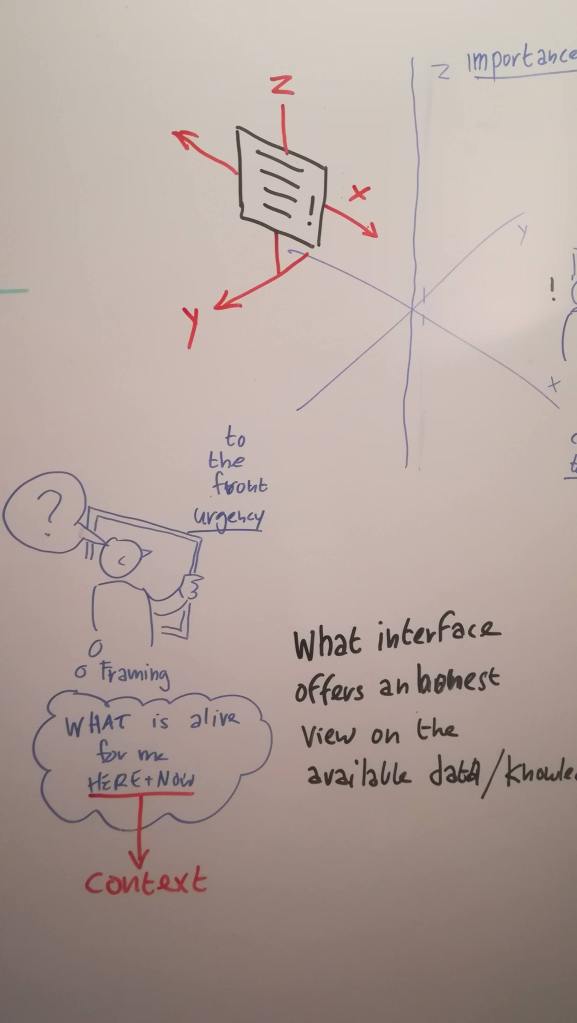 Z
Z importance
x
y
y
!
!
x
to
the
front
urgency
?
Framing
WHAT is alive
for me
HERE+NOW
context
What interface
offers an honest
View on the
available data/knowle